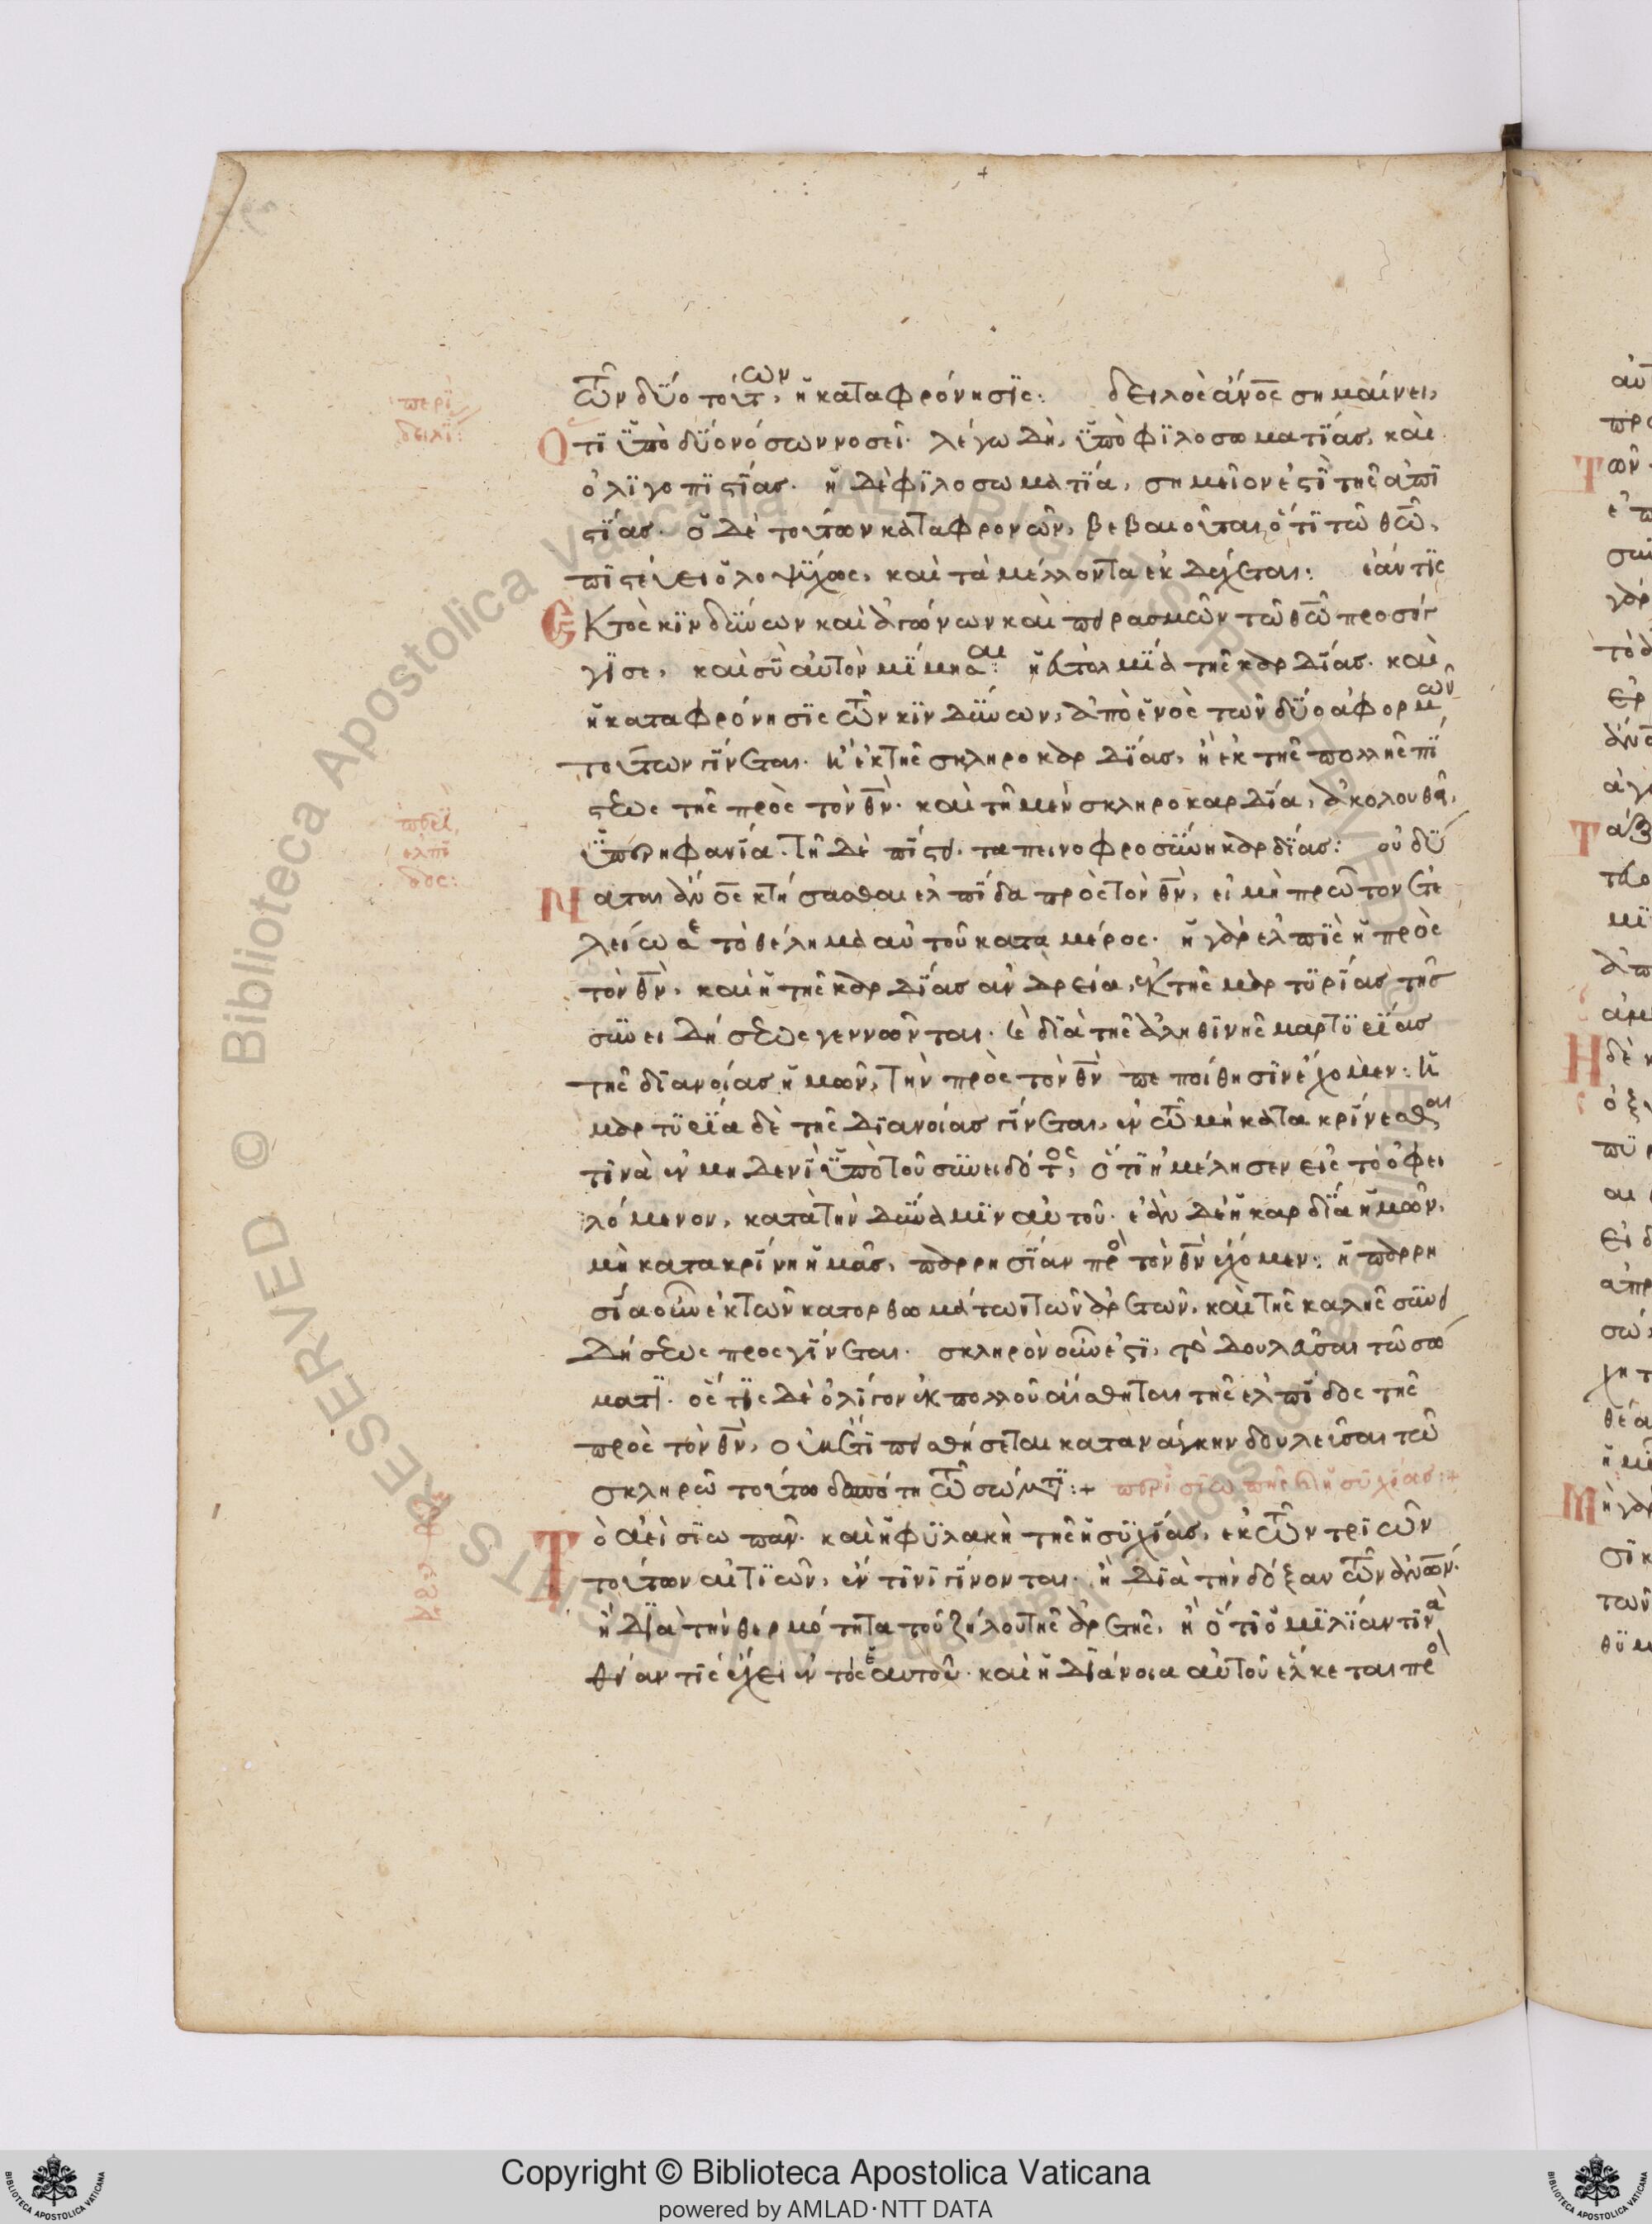 περὶ
δειλί:
τῶν δύο τούτων, ἡ καταφρόνησις: δειλὸς ἄνος σημαίνει,
Ὅτι ὑπὸ δύο νόσων νοσεῖ. λέγω δὴ, ὑπὸ φιλοσωματίας, καὶ
ὀλιγοπιστίας. ἡ δὲ φιλοσωματία, σημεῖον ἐστὶ τῆς ἀπι
στίας. ὁ δὲ τούτων καταφρονῶν, βεβαιοῦται ὅτι τῶ θῶ,
πιστεύει ὁλοψύχως, καὶ τὰ μέλλοντα ἐκδέχεται: ἐάν τις
Ἐκτὸς κινδύνων καὶ ἀγώνων καὶ πειρασμῶν τῶ θῶ προσήγ
γισε, καὶ σὺ αὐτὸν μίμησαι: ἡ εὐτολμία τῆς καρδίας. καὶ
ἡ καταφρόνησις τῶν κινδύνων, ἀπὸ ἑνὸς τῶν δύο ἀφορμῶν
τούτων γίνεται. ἢ ἐκ τῆς σκληροκαρδίας, ἢ ἐκ τῆς πολλῆς πί
στεως τῆς πρὸς τὸν θν. καὶ τῆ μὲν σκληροκαρδία, ἀκολουθεῖ,
ὑπερηφανία. τῆ δὲ πίστει. ταπεινοφροσύνη καρδίας: οὐ δύ
περὶ
ἐλπί
δος:
Ναται ἄνος κτήσασθαι ἐλπίδα πρὸς τὸν θν, εἰ μὴ πρῶτον ἐτε
λείωσε τὸ θέλημα αὐτοῦ κατα μέρος. ἡ γὰρ ἐλπὶς ἡ πρὸς
τὸν θν, καὶ ἡ τῆς καρδίας ἀνδρεία, ἐκ τῆς μαρτυρίας τῆς
συνειδήσεως γεννῶνται. καὶ διὰ τῆς ἀληθινῆς μαρτυρίας
τῆς διανοίας ἡμῶν, τὴν πρὸς τὸν θν πεποίθησιν ἔχομεν: ἡ
μαρτυρία δὲ τῆς διανοίας γίνεται, ἐν τῶ μὴ κατακρίνεσθαι
τινὰ ἐν μηδενὶ ὑπὸ τοῦ συνειδότος, ὅτι ἠμέλησεν εἰς τὸ ὀφει
λόμενον, κατὰ τὴν δύναμιν αὐτοῦ. ἐὰν δὲ ἡ καρδία ἡμῶν,
μὴ κατακρίνη ἡμᾶς, παρρησίαν πρὸ τὸν θν ἔχομεν: ἡ παρρη
σία οὖν ἐκ τῶν κατορθωμάτων τῶν ἀρετῶν, καὶ τῆς καλῆς συνει
δήσεως προσγίνεται. σκληρὸν οὖν ἐστὶ, τὸ δουλεῦσαι τῶ σώ
ματι. ὅς τις δὲ ὀλίγον ἐκ πολλοῦ αἰσθηται τῆς ἐλπίδος τῆς
πρὸς τὸν θν, οὐκέτι πεισθήσεται κατ ἀνάγκην δουλεῦσαι τῶ
σκληρῶ τούτω δεσπότη τῶ σώματι:+ περὶ σιωπῆς καὶ ἡσυχίας:+
Τὸ ἀεὶ σιωπᾶν. καὶ ἡ φυλακὴ τῆς ἡσυχίας, ἐκ τῶν τριῶν
τούτων αἰτιῶν, ἐν τινὶ γίνονται. ἢ διὰ τὴν δόξαν τῶν ἀνων.
ἢ διὰ τὴν θερμότητα τοῦ ζήλου τῆς ἀρετῆς, ἢ ὅτι ὁμιλίαν τινὰ
θείαν τὶς ἔχει ἐντὸς ἑαυτοῦ. καὶ ἡ διάνοια αὐτοῦ ἕλκεται πρὸ